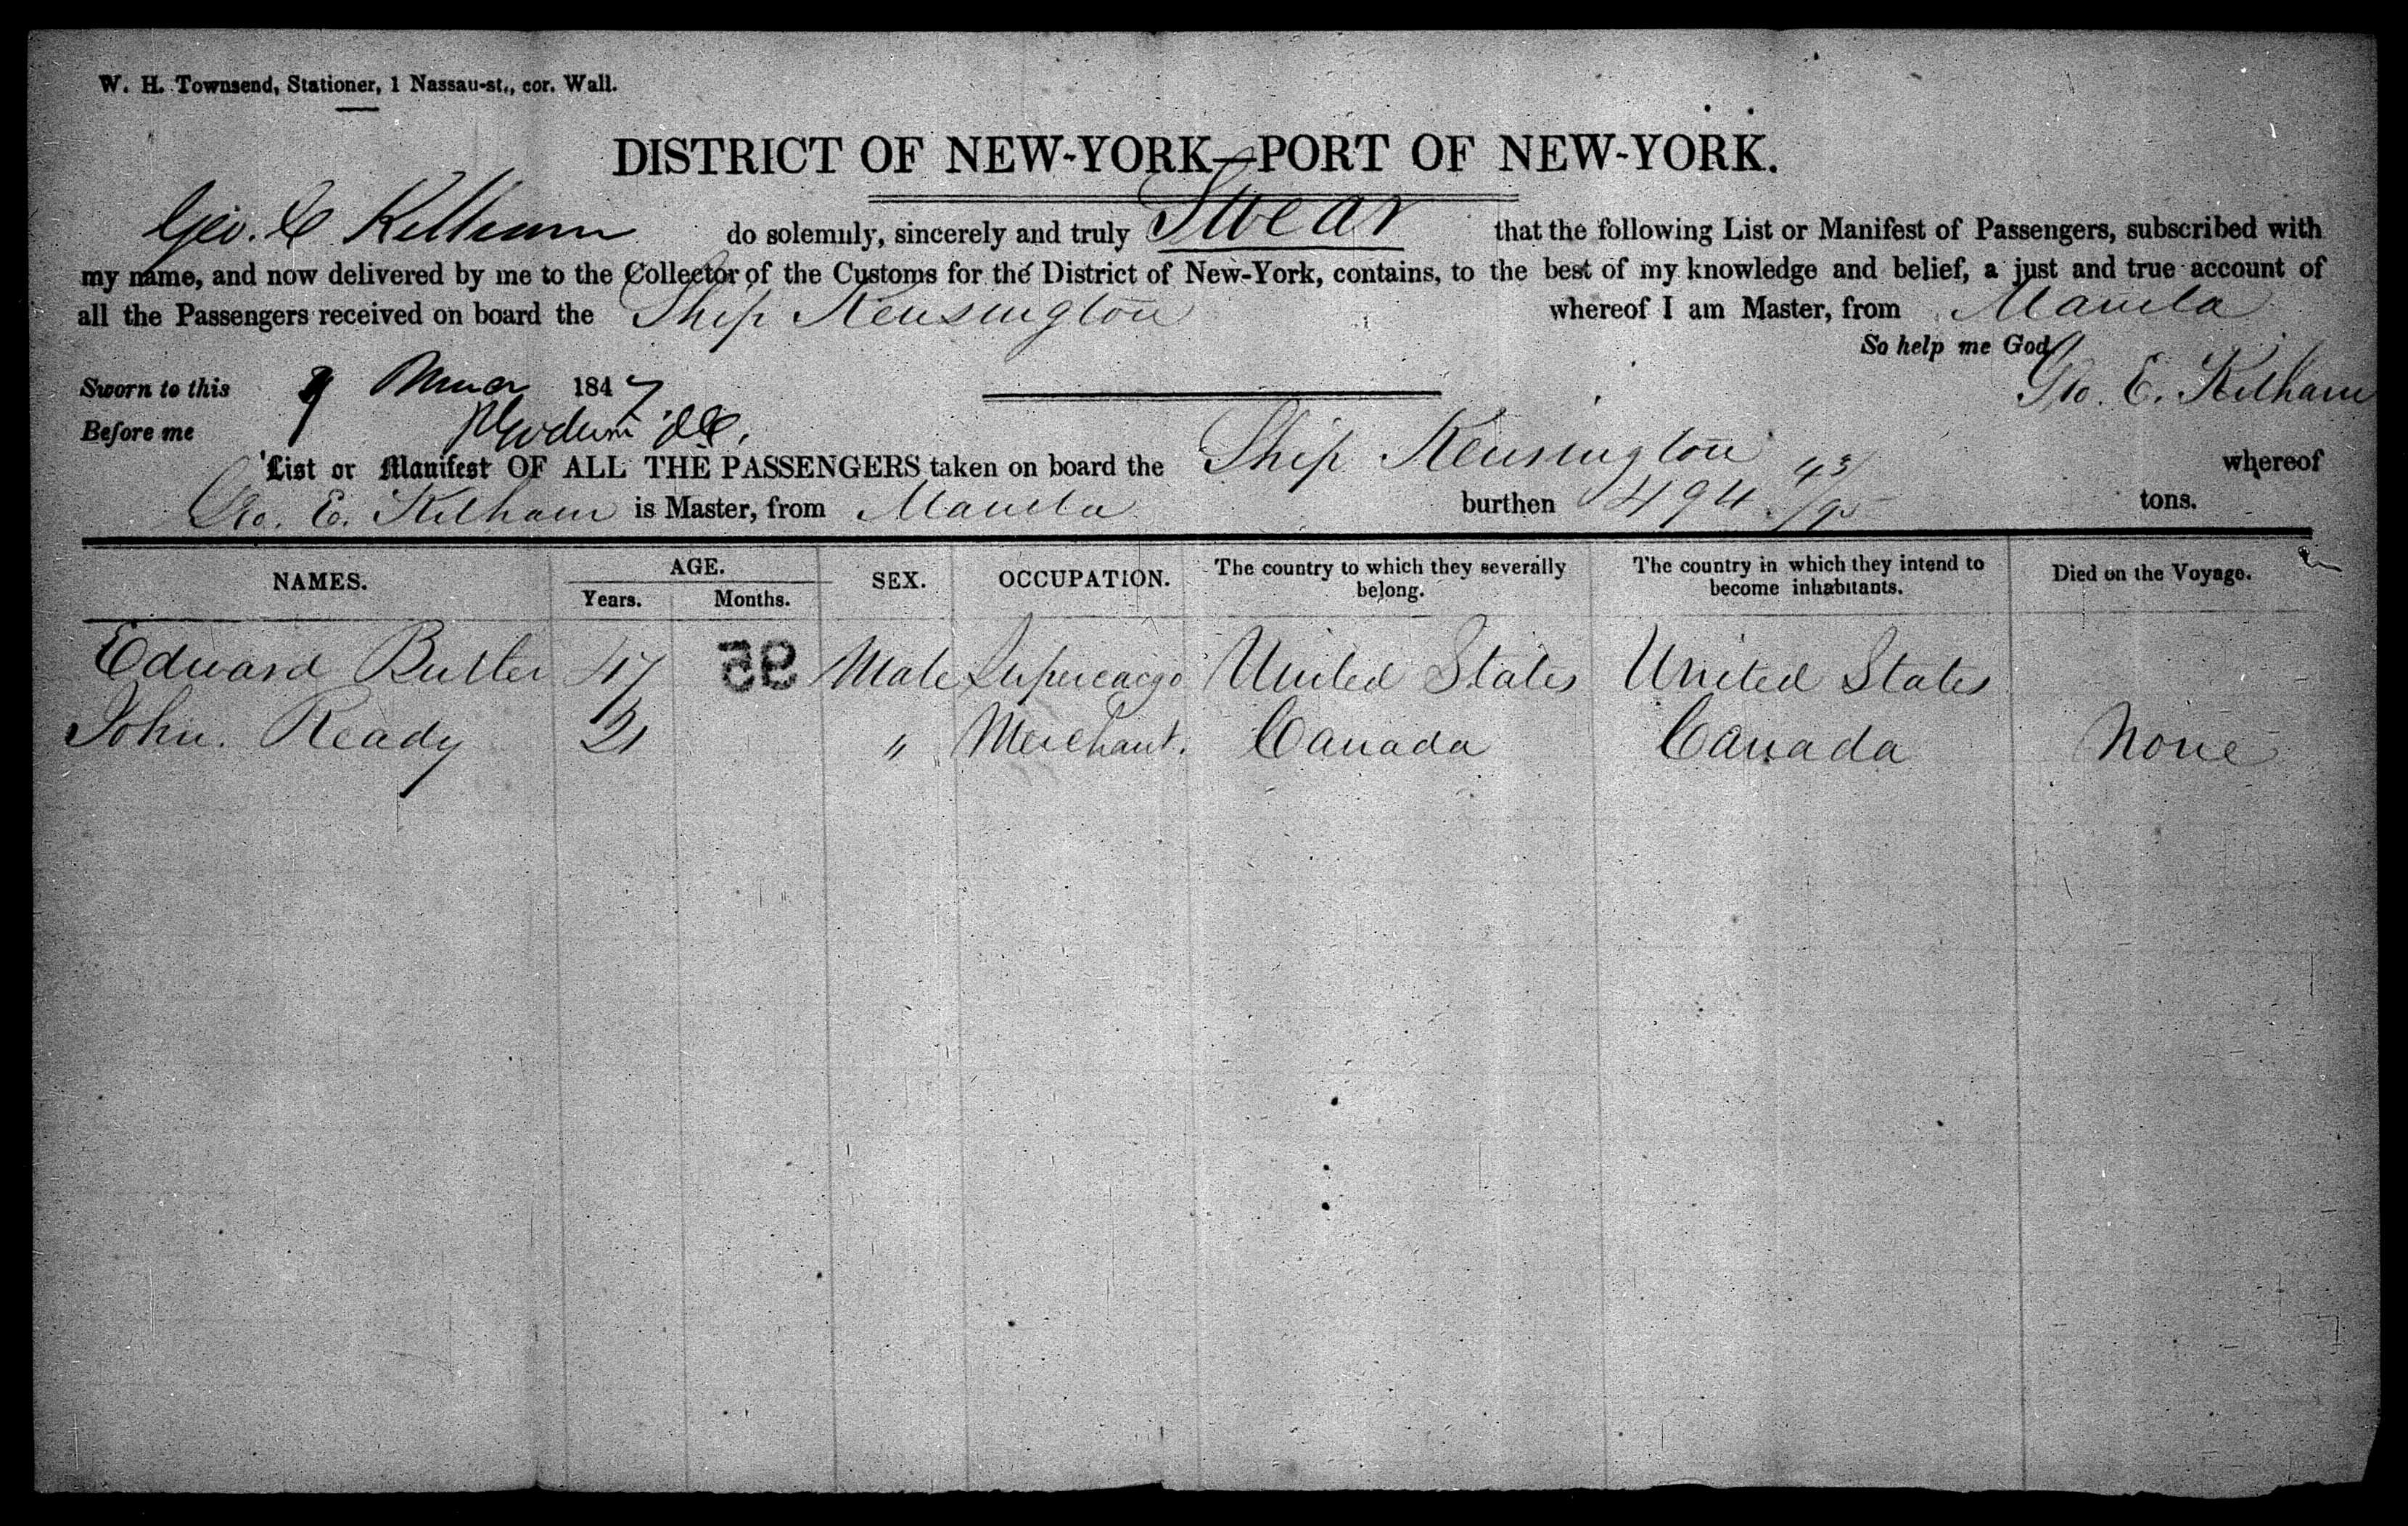 W. H. Townsend, Stationer, 1 Nassau-st., cor. Wall.
DISTRICT OF NEW-YORK—PORT OF NEW-YORK.
Geo. E Kilham do solemnly, sincerely and truly Swear that the following List or Manifest of Passengers, subscribed with
my name, and now delivered by me to the Collector of the Customs for the District of New-York, contains, to the best of my knowledge and belief, a just and true account of
all the Passengers received on board the Ship Kensington whereof I am Master, from Manila
So help me God
Geo. E. Kilham
Sworn to this 9 1847
Before me
List or Manifest OF ALL THE PASSENGERS taken on board the Ship Kensington whereof
Geo. E. Kilham is Master, from Manila burthen 494 43/95 tons.
NAMES. AGE. SEX. OCCUPATION. The country to which they severally belong. The country in which they intend to become inhabitants. Died on the Voyage.
Years. Months.
Edward Butler 47 56 Male Supercargo United States United States
John. Ready 21 " Merchant. Canada Canada None